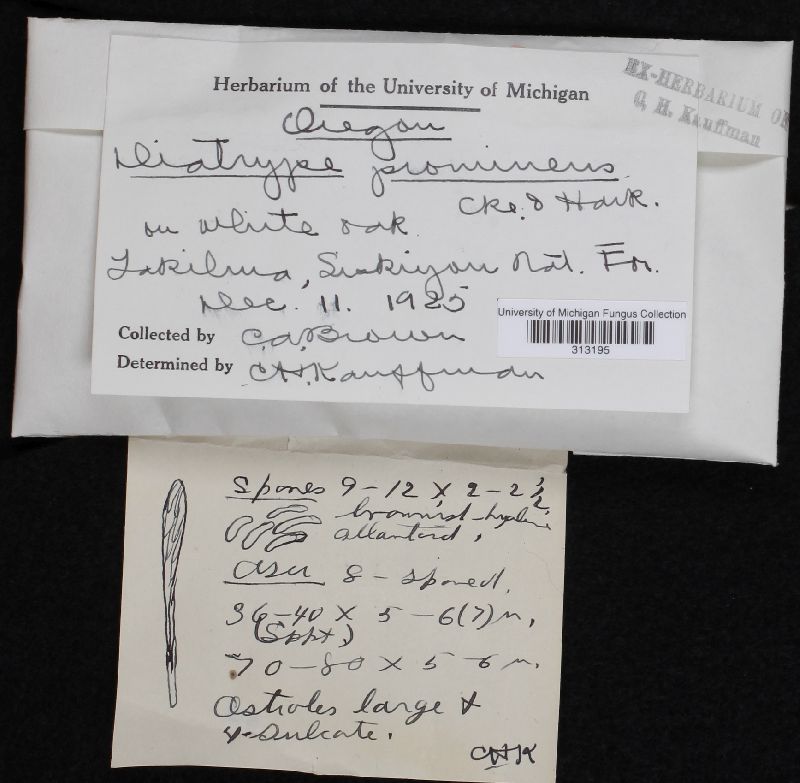 Herbarium of the University of Michigan
EX-HERBARIUM OF
C. H. Kauffman
Oregon
Diatrype prominens
Cke. & Hark.
on white oak
Takilma, Siskiyou Nat. For.
Dec. 11. 1925
University of Michigan Fungus Collection
313195
Collected by C.A. Brown
Determined by C.H. Kauffman
Spores 9-12 x 2-2½
brownish-hyaline
allantoid,
Asci 8-spored,
36-40 x 5-6(7) µ,
(Sppt)
70-80 x 5-6 µ.
Ostioles large &
4-sulcate.
CHK